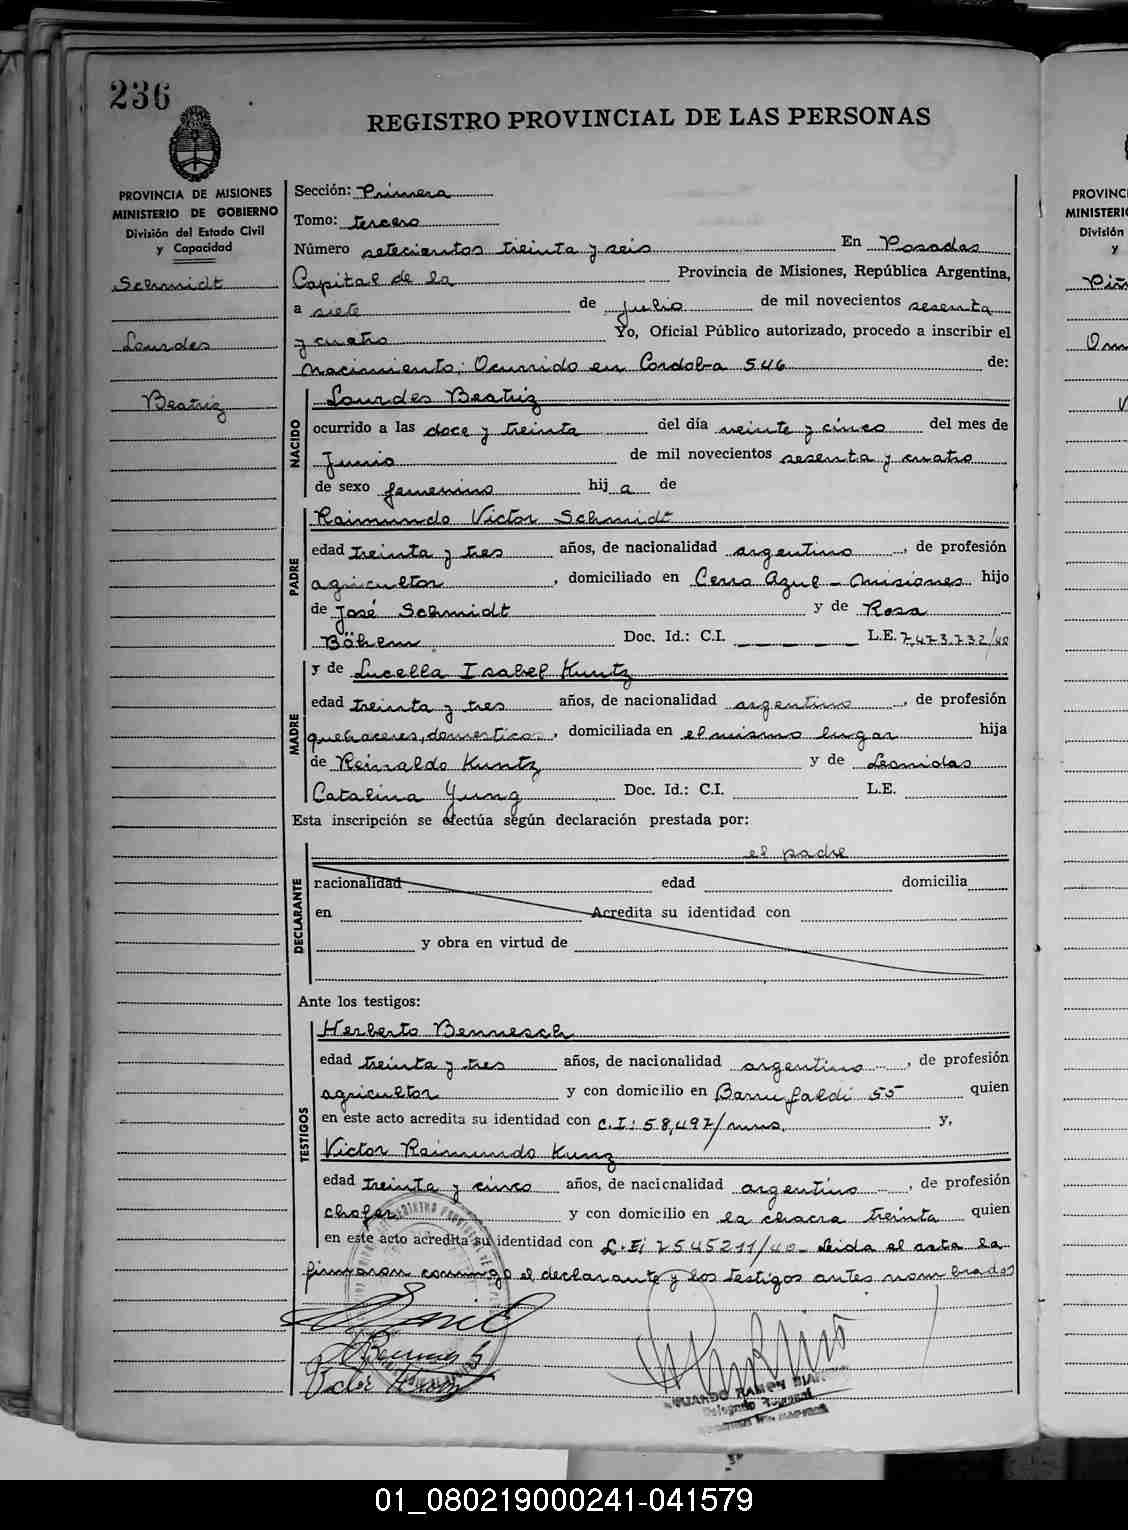 236
REGISTRO PROVINCIAL DE LAS PERSONAS
PROVINCIA DE MISIONES
MINISTERIO DE GOBIERNO
División del Estado Civil
y Capacidad
Schmidt
Lourdes
Beatriz
Sección: Primera
Tomo: tercero
Número setecientos treinta y seis En Posadas
Capital de la Provincia de Misiones, República Argentina,
a siete de julio de mil novecientos sesenta
y cuatro Yo, Oficial Público autorizado, procedo a inscribir el
nacimiento; Ocurrido en Cordoba 546 de:
NACIDO
Lourdes Beatriz
ocurrido a las doce y treinta del día veinte y cinco del mes de
Junio de mil novecientos sesenta y cuatro
de sexo femenino hij a de
PADRE
Raimundo Victor Schmidt
edad treinta y tres años, de nacionalidad argentino, de profesión
agricultor, domiciliado en Cerro Azul - Misiones hijo
de José Schmidt y de Rosa
Böhem Doc. Id.: C.I. L.E. 7.473.732/40
MADRE
y de Lucella Isabel Kuntz
edad treinta y tres años, de nacionalidad argentino, de profesión
quehaceres, domesticos, domiciliada en el mismo lugar hija
de Reinaldo Kuntz y de Leonidas
Catalina Yung Doc. Id.: C.I. L.E.
Esta inscripción se efectúa según declaración prestada por:
DECLARANTE
el padre
nacionalidad edad domicilia
en Acredita su identidad con
y obra en virtud de
Ante los testigos:
TESTIGOS
Herberto Bennesch
edad treinta y tres años, de nacionalidad argentino, de profesión
agricultor y con domicilio en Barrufaldi 55 quien
en este acto acredita su identidad con C.I: 58,497/mnes. y,
Victor Raimundo Kunz
edad treinta y cinco años, de nacionalidad argentino, de profesión
chofer y con domicilio en la chacra treinta quien
en este acto acredita su identidad con L.E; 7545211/40 - Leida el acta la
firmaron conmigo el declarante y los testigos antes nombrados
Victor
RAMON
Delegado
PROVINC
MINISTERI
División
y
01_080219000241-041579